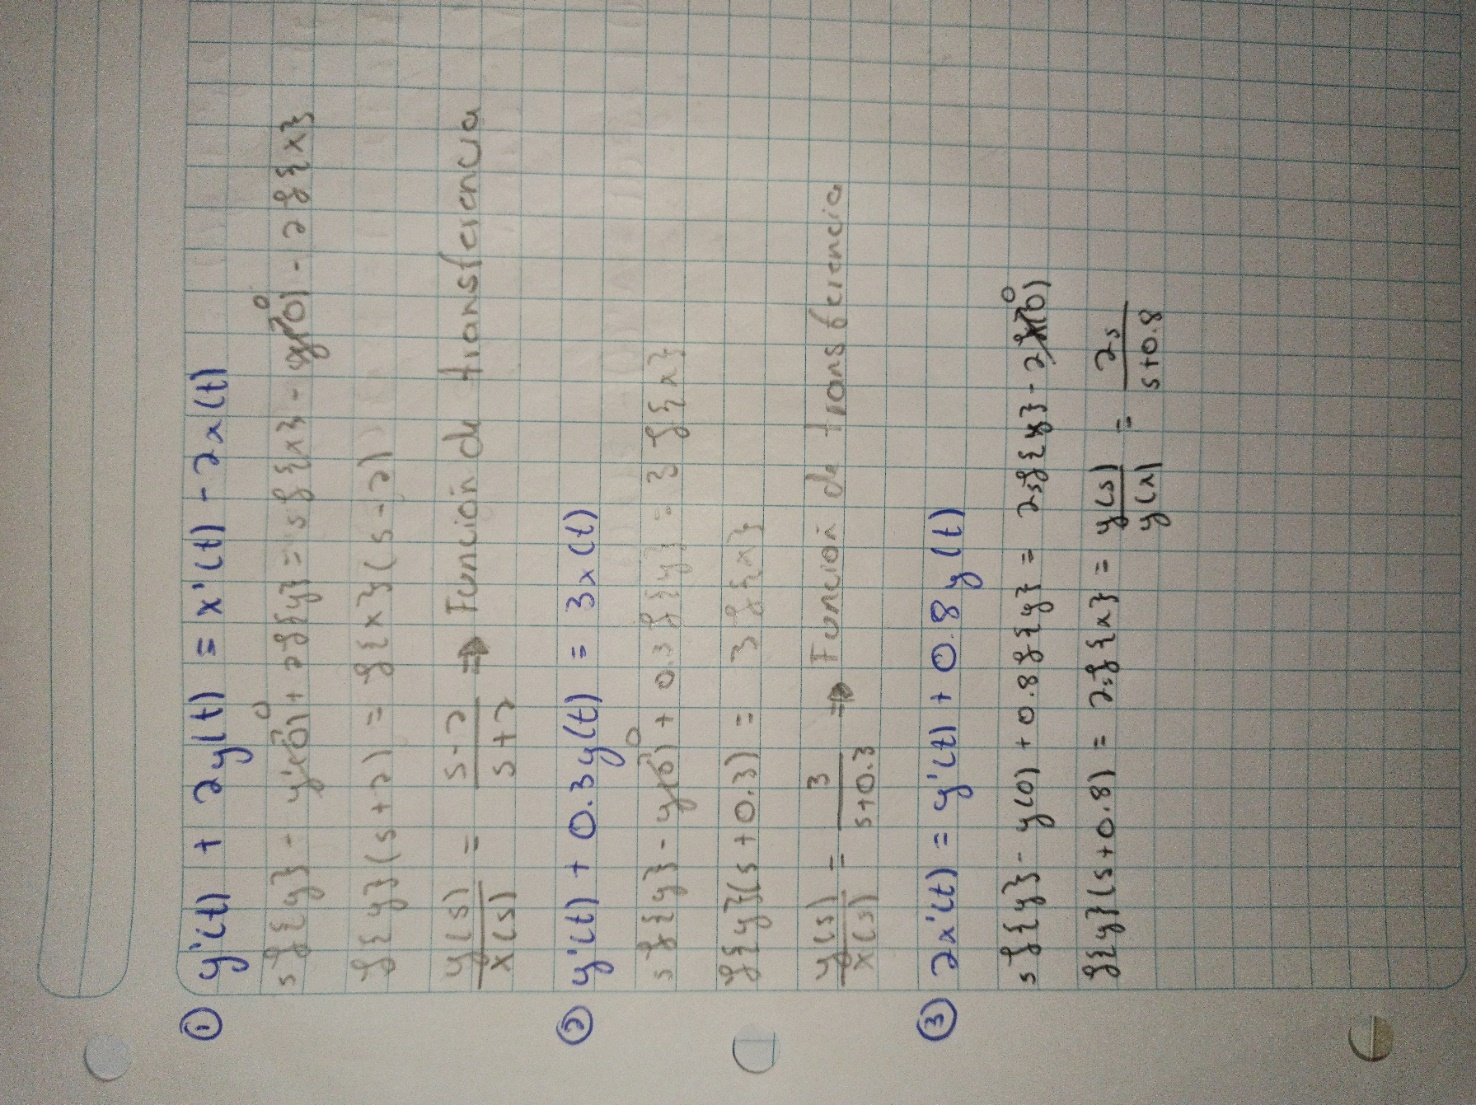 ① y'(t) + 2y(t) = x'(t) - 2x(t)
sℒ{y} - y'(0)⁰ + 2ℒ{y} = sℒ{x} - y(0)⁰ - 2ℒ{x}
ℒ{y}(s+2) = ℒ{x}(s-2)
y(s)/x(s) = s-2/s+2 ⇒ Función de transferencia
② y'(t) + 0.3y(t) = 3x(t)
sℒ{y} - y(0)⁰ + 0.3ℒ{y} = 3ℒ{x}
ℒ{y}(s+0.3) = 3ℒ{x}
y(s)/x(s) = 3/s+0.3 ⇒ Función de transferencia
③ 2x'(t) = y'(t) + 0.8y(t)
sℒ{y} - y(0) + 0.8ℒ{y} = 2sℒ{x} - 2x(0)⁰
ℒ{y}(s+0.8) = 2sℒ{x} = y(s)/y(x) = 2s/s+0.8